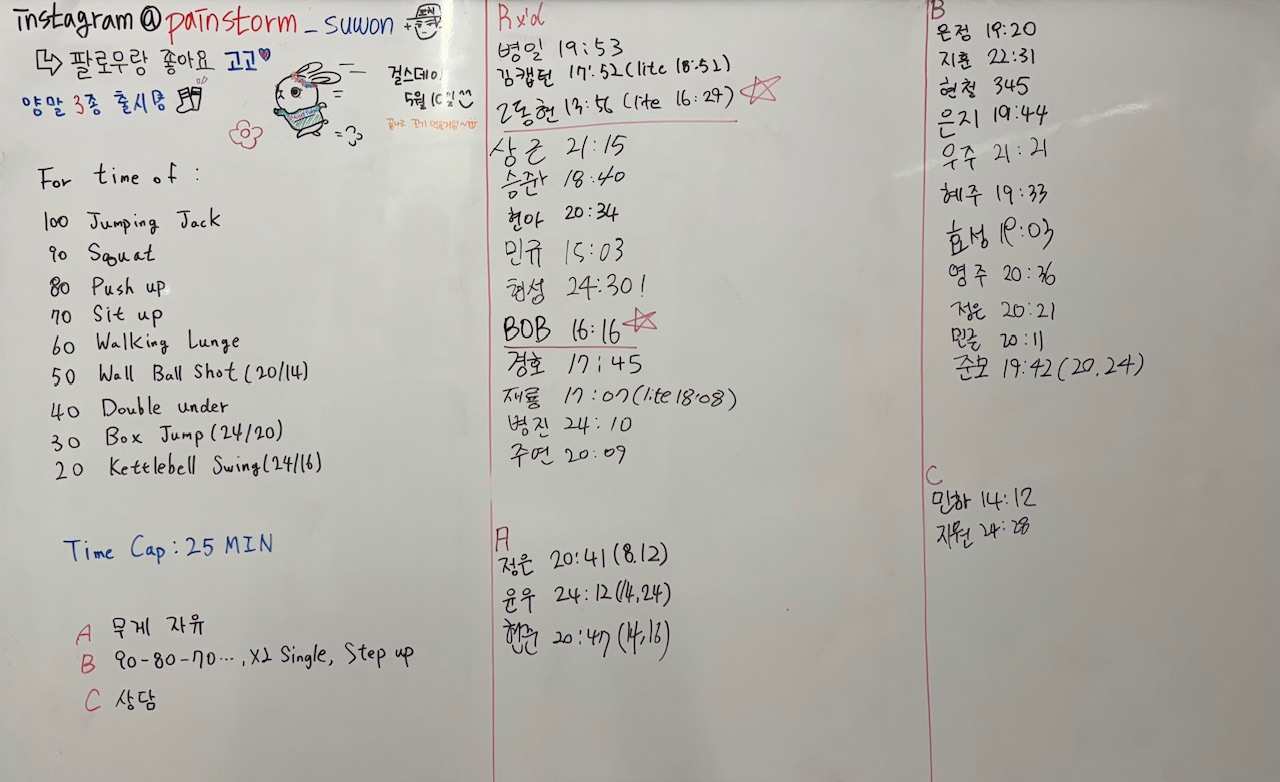 instagram@painstorm_suwon
팔로우랑 좋아요 고고
양말 3종 출시중
걸스데이
5월 10일
For time of :
100 Jumping Jack
90 Squat
80 Push up
70 Sit up
60 Walking Lunge
50 Wall Ball Shot (20/14)
40 Double under
30 Box Jump (24/20)
20 Kettlebell Swing (24/16)
Time Cap : 25 MIN
A 무게 자유
B 90-80-70..., X2 Single, Step up
C 상담
Rx'd
병일 19:53
김캡틴 17:52 (lite 18:51)
2동현 13:56 (lite 16:27)
상근 21:15
승준 18:40
현아 20:34
민규 15:03
현성 24:30!
BOB 16:16
경호 17:45
재룡 17:07 (lite 18:08)
병진 24:10
주연 20:09
A
정은 20:41 (8.12)
윤우 24:12 (14,24)
현준 20:47 (14,16)
B
은정 19:20
지훈 22:31
현철 345
은지 19:44
우주 21:21
혜주 19:33
효성 19:03
영주 20:36
정은 20:21
민글 20:11
준모 19:42 (20.24)
C
민하 14:12
지원 24:28